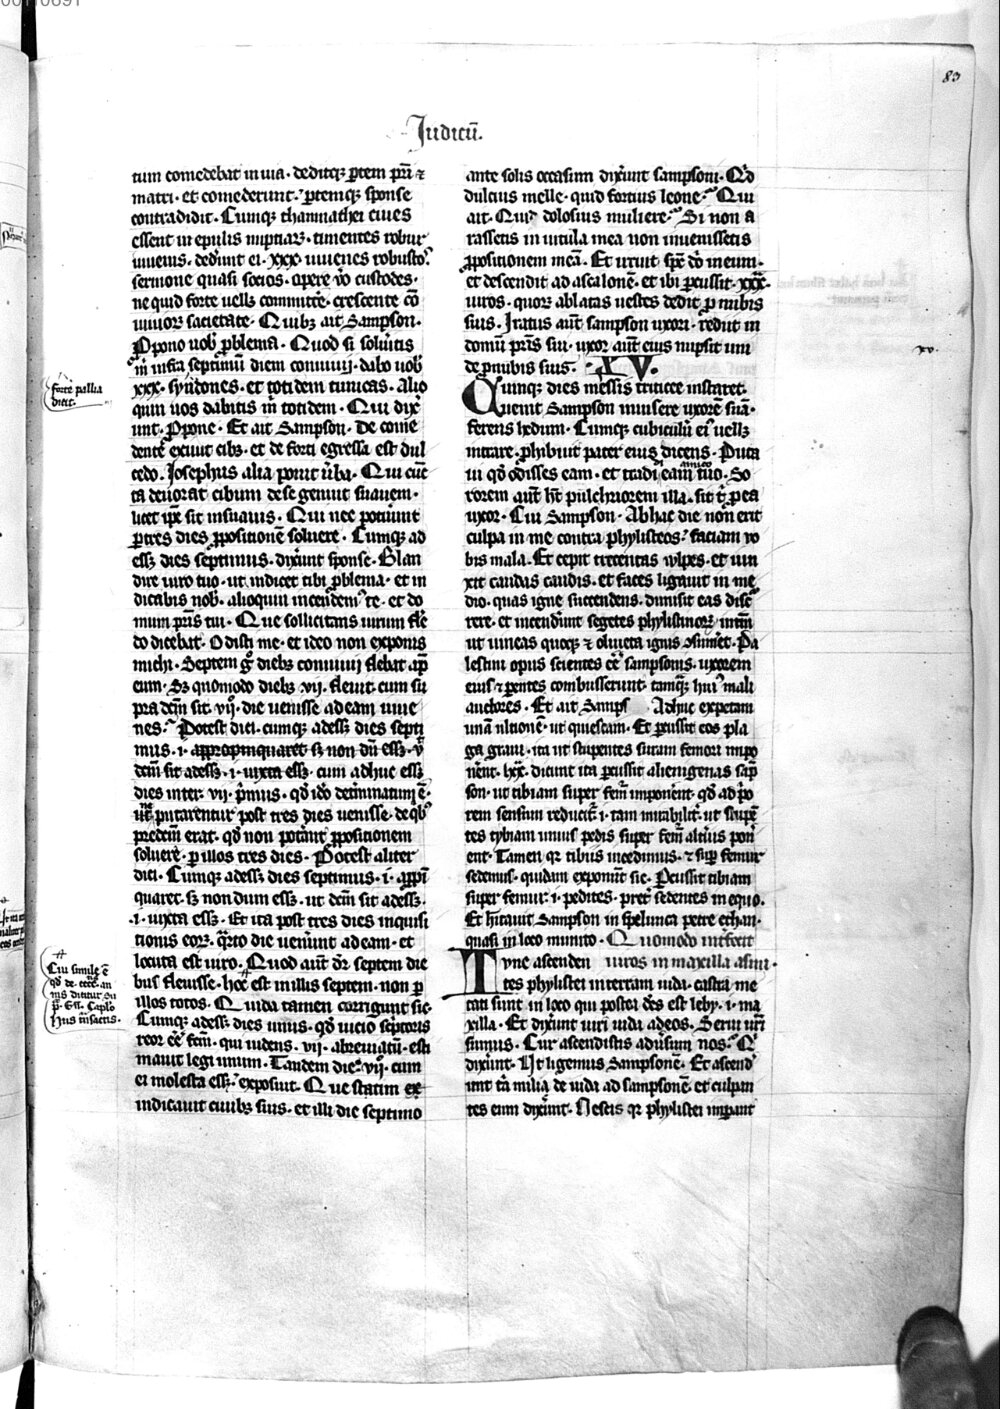 83
Iudicū.
tum comedebat in via. deditqꝫ ꝑtem pr̄i ⁊
matri. et comederunt. ꝑtemqꝫ sponse
contradidit. Cumqꝫ thamnathei ciues
essent in epulis nuptiaꝝ. timentes robur
iuuenis. dederunt ei .xxx. iuuenes robustos.
sermone quasi socios. opere ꝟo custodes.
ne quid forte uellꝫ committe. crescente cō
uiuioꝝ sacietate. Quibꝫ ait Sampson.
Ꝓpono uob̄ ꝓblema. Quod si solueritis
m̄ infra septimum diem conuiuij. dabo uob̄
xxx. syndones. et totidem tunicas. Alio
quin uos dabitis m̄ totidem. Qui dixe
runt. Ꝓpone. Et ait Sampson. De come
dente exiuit cibꝰ. et de forti egressa est dul
cedo. Josephus alia ponit ūba. Qui cūc
ta deuorat cibum de se genuit suauem.
licet ip̄e sit insuauis. Qui nec potuerunt
ꝑ tres dies ꝓpositionē soluere. Cumqꝫ ad
essꝫ dies septimus. dixerunt sponse. Blan
dire uiro tuo. ut indicet tibi ꝓblema. et in
dicabis nob̄. alioquin incendemꝰ te. et do
mum pr̄is tui. Que sollicitans uirum flē
do dicebat. Odisti me. et ideo non exponis
michi. Septem gͦ diebꝫ conuiuij flebat apͩ
eum. Sꝫ quomodo diebꝫ .vij. fleuit. cum su
pra dcm̄ sit .vij. die uenisse ad eam iuue
nes. Potest dici. cumqꝫ adessꝫ dies septi
mus .i. appropinquaret. sꝫ non dū essꝫ. ꝟ
dcm̄ sit adessꝫ .i. iuxta essꝫ. cum adhuc essꝫ
dies inter .vij. p̄mus. qd̄ ido det̄minatum ē.
ne ut putarentur post tres dies uenisse. de qͥbꝰ
predcm̄ erat. qd̄ non potāt ꝓpositionem
soluere. ꝑ illos tres dies. Potest aliter
dici. Cumqꝫ adessꝫ dies septimus .i. appͦpī
quaret. sꝫ non dum essꝫ. ut dcm̄ sit adessꝫ
.i. iuxta essꝫ. Et ita post tres dies inquisi
tionis eoꝝ. qͣrto die uenerunt ad eam. et
locuta est uiro. Quod aut̄ dr̄ septem die
bus fleuisse. hoc est in illis septem. non ꝑ
illos totos. Quida tamen corrigunt sic.
Cumqꝫ adessꝫ dies unus. qd̄ uicio sc̄ptoris
reor ēē fcm̄. qui uidens .vij. abreuiatū. esti
mauit legi unum. Tandem die .vij. cum
ei molesta essꝫ. exposuit. Que statim
indicauit ciuibꝫ suis. et illi die septimo
forte pallia
dicit.
Cui simile ē
ante solis occasum dixerunt sampsoni. Qͥd
dulcius melle. quid fortius leone. Qui
ait. Quid dolosius muliere. Si non a
rassetis in uitula mea non inuenissetis
ꝓpositionem meā. Et irruit sp̄c dō in eum.
et descendit ad ascalonē. et ibi ꝑcussit .xxx.
uiros. quoꝝ ablatas uestes dedit ꝓnubis
suis. Iratus aut̄ sampson uxori. redijt in
domū pr̄is sui. uxor aut̄ eius nupsit uni
de ꝓnubis suis. XV.
xv.
Cumqꝫ dies messis triticee instaret.
uenit Sampson inuisere uxorē suā.
ferens hedum. Cumqꝫ cubiculū eiꝰ uellꝫ
intrare. ꝓhibuit pater eius dicens. Puta
ui qd̄ odisses eam. et tradidi eam amico tuo. So
rorem aut̄ hꝫ pulchriorem illa. sit tͥ ꝓ ea
uxor. Cui Sampson. Ab hac die non erit
culpa in me contra phylisteos. faciam vo
bis mala. Et cepit trecentas vulpes. et iun
xit caudas caudis. et faces ligauit in me
dio. quas igne succendens. dimisit eas disc̄
rere. et incenderunt segetes phylistinoꝝ intm̄
ut uineas quoqꝫ ⁊ oliueta ignis ꝯsumeret. Pa
lestini opus scientes ēē sampsonis. uxorem
eius ⁊ parentes combusserunt. tamqꝫ huiꝰ mali
auctores. Et ait Samps Adhuc expetam
unā ultionē. ut quiescam. Et ꝑcussit eos pla
ga graui. ita ut stupentes suram femori inpo
nerent. lxx. dicunt ita ꝑcussit alienigenas sāp
son. ut tibiam super femr̄ imponerent. qd̄ ad p̄o
rem sensum reducitꝰ .i. tam mirabilit̄. ut stupē
tes tybiam unius pedis super femr̄ altius pon̄
ent. Tamen qꝛ tibiis incedimus. ⁊ suꝑ femur
sedemus. quidam exponunt sic. Ꝑcussit tibiam
super femur .i. pedites. pret̄ sedentes in equo.
Et hītauit Sampson in spelunca petre ethan.
quasi in loco munito. Quomodo int̄fecit
Tunc ascenden uiros in maxilla asini.
tes phylistei in terram iuda. castra me
tati sunt in loco qui postea dc̄s est lehy .i. ma
xilla. Et dixerunt uiri iuda ad eos. Serui ur̄i
sumus. Cur ascendistis adūsum nos. Qͥ
dixerunt. Ut ligemus Sampsonē. Et ascend
unt tria milia de iuda ad sampsonē. et culpan
tes eum dixerunt. Nescis qꝛ phylistei imꝑant